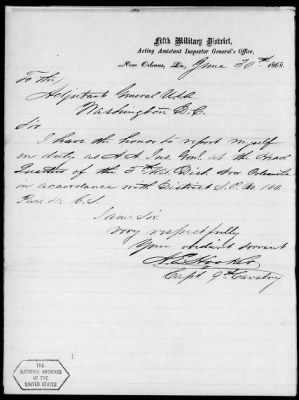 Fifth Military District,
Acting Assistant Inspector General's Office,
New Orleans, La., June 30th 1868.
To the
Adjutant General U.S.A.
Washington D.C.
Sir
I have the honor to report myself
on duty as A. A. Ins. Genl. at the Head
Quarters of the 5th Mil. Dist. New Orleans La
in accordance with District S.O. No 100
C.S.
I am Sir
very respectfully
Your obedient servant
Capt 9th Cavalry
THE
NATIONAL ARCHIVES
OF THE
UNITED STATES